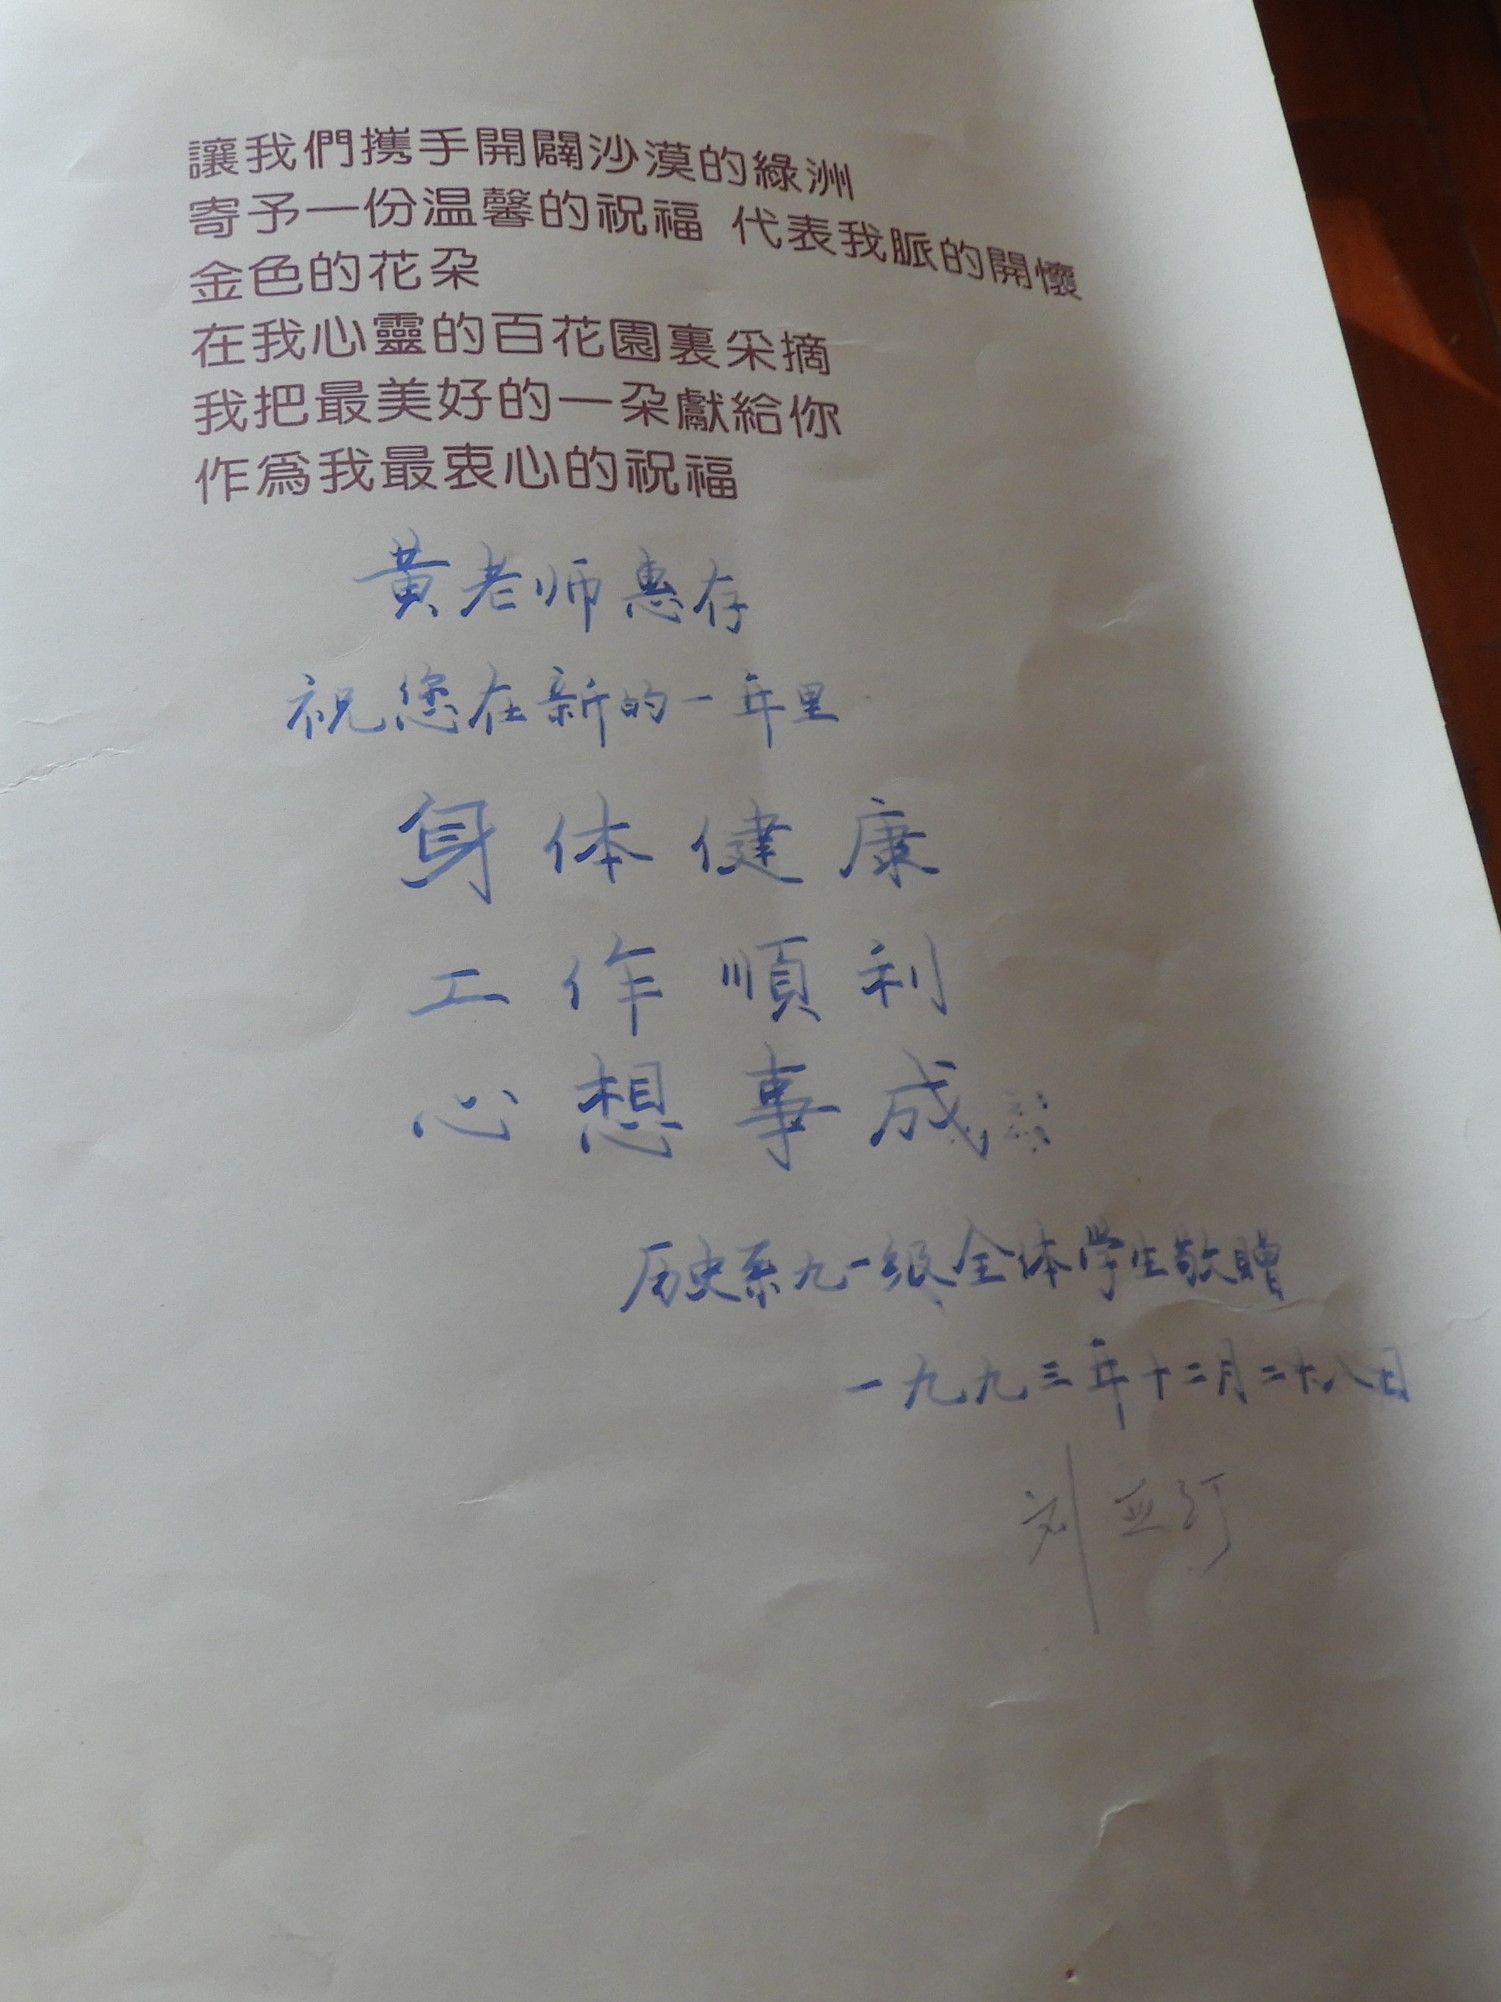 讓我們攜手開闢沙漠的綠洲
寄予一份温馨的祝福 代表我脈的開懷
金色的花朵
在我心靈的百花園裏采摘
我把最美好的一朵獻給你
作爲我最衷心的祝福
黃老师惠存
祝您在新的一年里
身体健康
工作順利
心想事成
历史系九一级全体学生敬贈
一九九三年十二月二十八日
刘亚